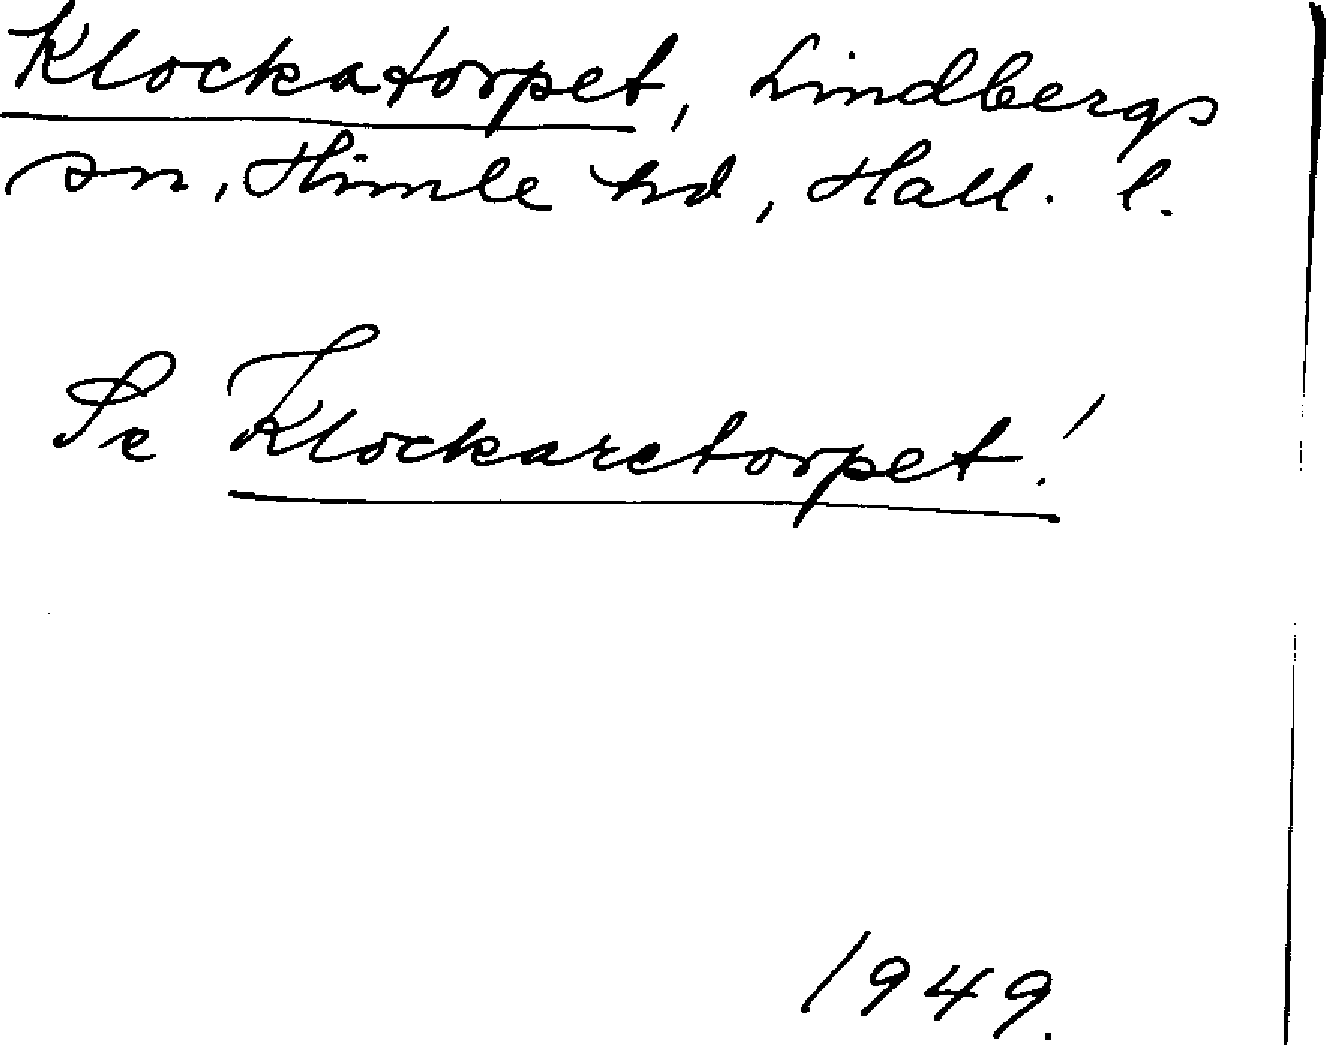 Klockatorpet, Lindbergs
sn, Himle hd, Hall. l.
Se Klockaretorpet!
1949.